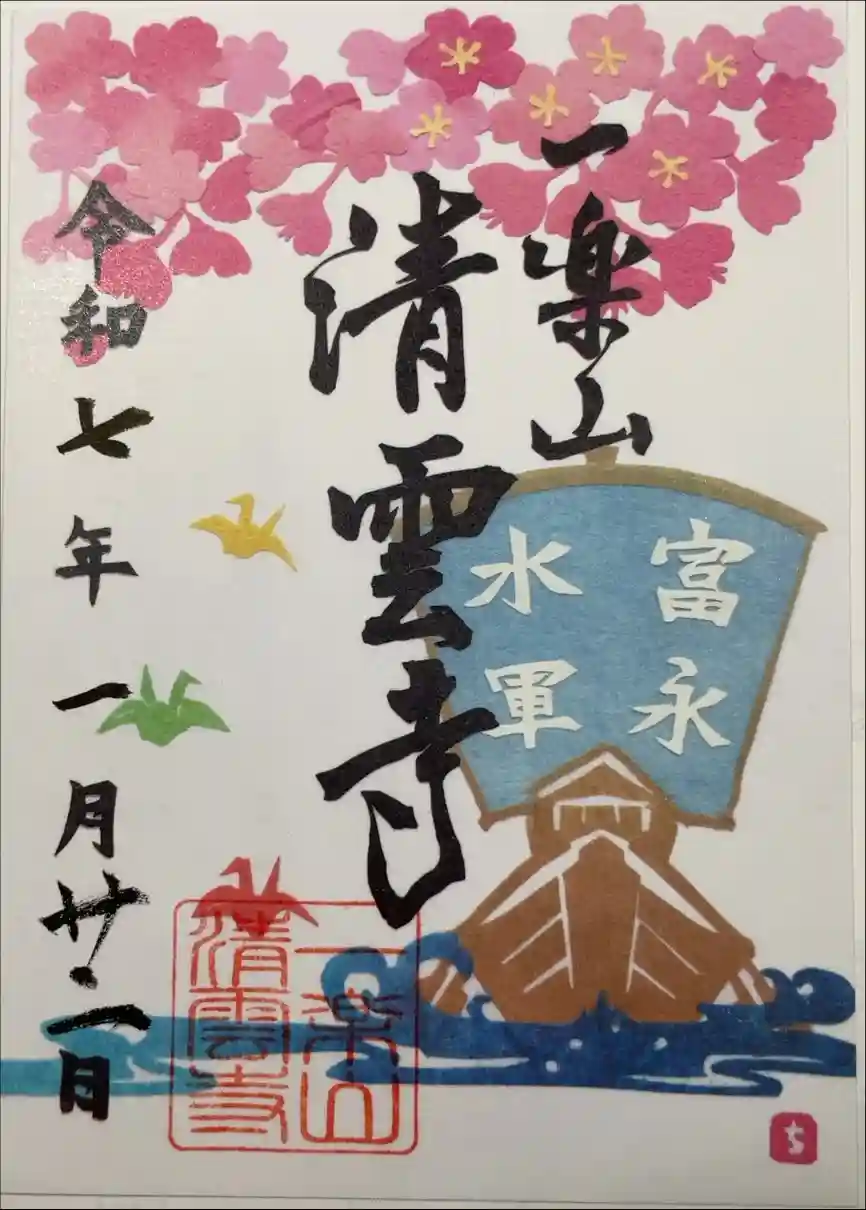 一楽山
清雲寺
令和七年一月廿二日
富永
水軍
一楽山
清雲寺
ち